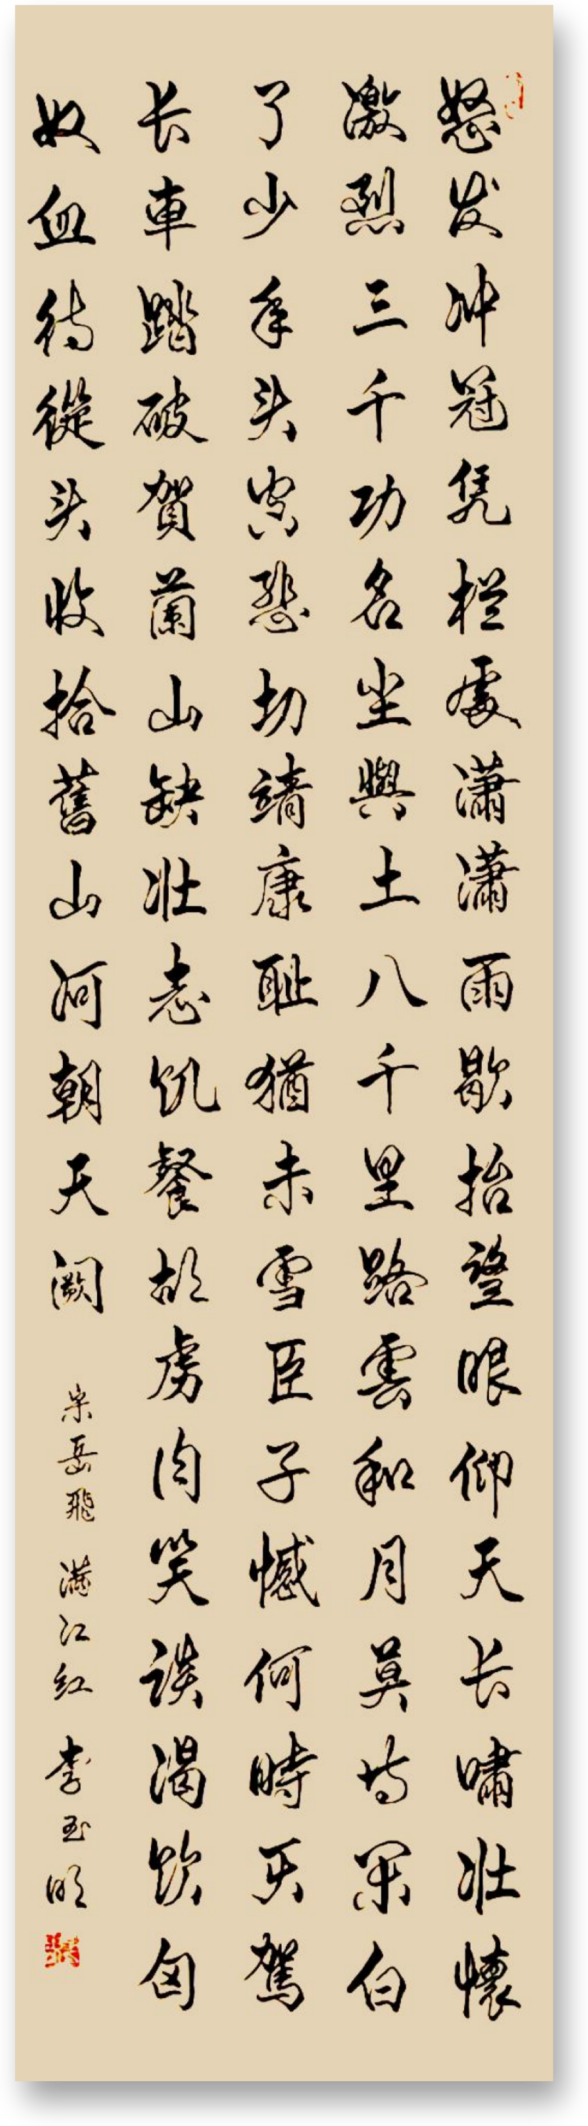 怒发冲冠凭栏處瀟瀟雨歇抬望眼仰天长嘯壮懷
激烈三千功名尘與土八千里路雲和月莫等闲白
了少年头空悲切靖康耻猶未雪臣子憾何時灭駕
长車踏破賀蘭山缺壮志饥餐胡虏肉笑谈渴饮匈
奴血待從头收拾舊山河朝天阙 宋岳飛 满江红 李玉明